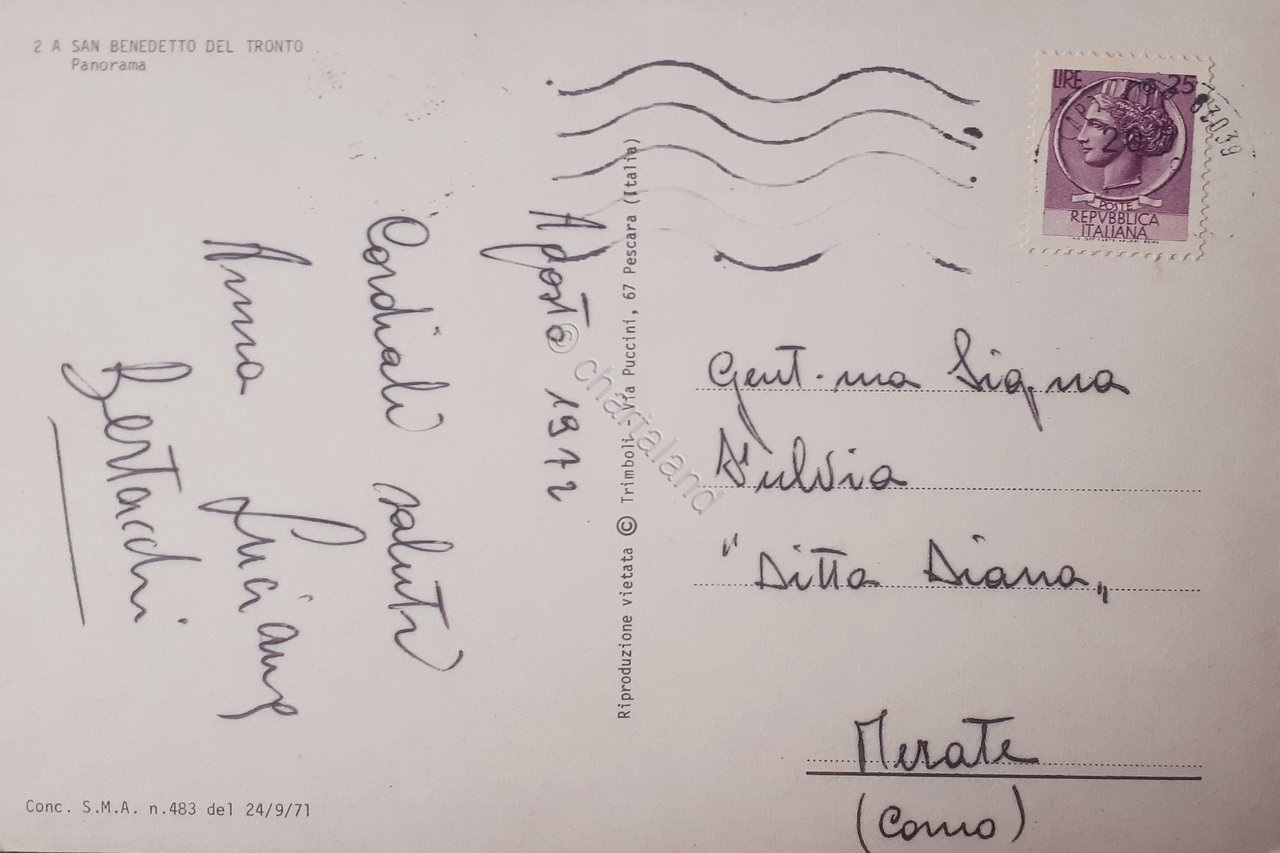 2 A SAN BENEDETTO DEL TRONTO
Panorama
Agosto 1972
Cordiali saluti
Anna Luciano
Bertacchi
Conc. S.M.A. n.483 del 24/9/71
Riproduzione vietata © Trimboli - Via Puccini, 67 Pescara (Italia)
© chartaland
LIRE 25
POSTE
REPVBBLICA
ITALIANA
63039
Gent.ma Sig.na
Fulvia
"Ditta Diana„
Merate
(Como)